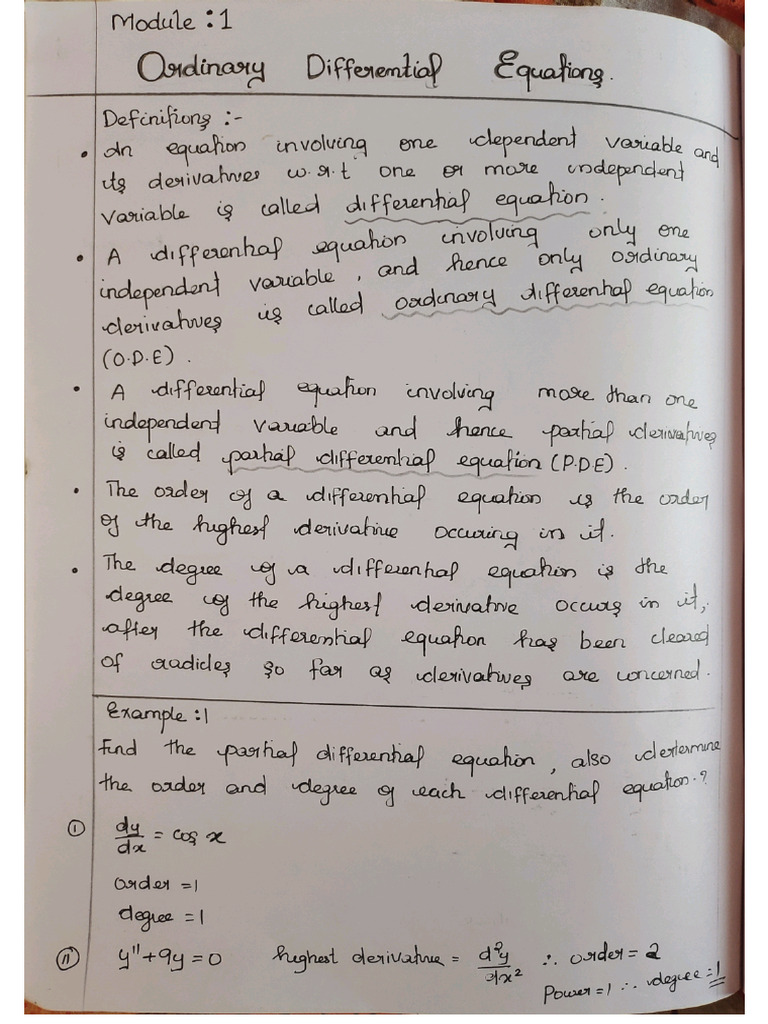 Module : 1
Ordinary Differential Equations.
Definitions :-
• An equation involving one dependent variable and
its derivatives w.r.t one or more independent
variable is called differential equation.
• A differential equation involving only one
independent variable, and hence only ordinary
derivatives is called ordinary differential equation
(O.D.E).
• A differential equation involving more than one
independent variable and hence partial derivatives
is called partial differential equation (P.D.E).
• The order of a differential equation is the order
of the highest derivative occuring in it.
• The degree of a differential equation is the
degree of the highest derivative occurs in it,
after the differential equation has been cleared
of radicles so far as derivatives are concerned.
Example : 1
Find the partial differential equation, also determine
the order and degree of each differential equation.?
① dy/dx = cos x
order = 1
degree = 1
⑪ y'' + 9y = 0 highest derivative = d²y/dx² ∴ order = 2
Power = 1 ∴ degree = 1